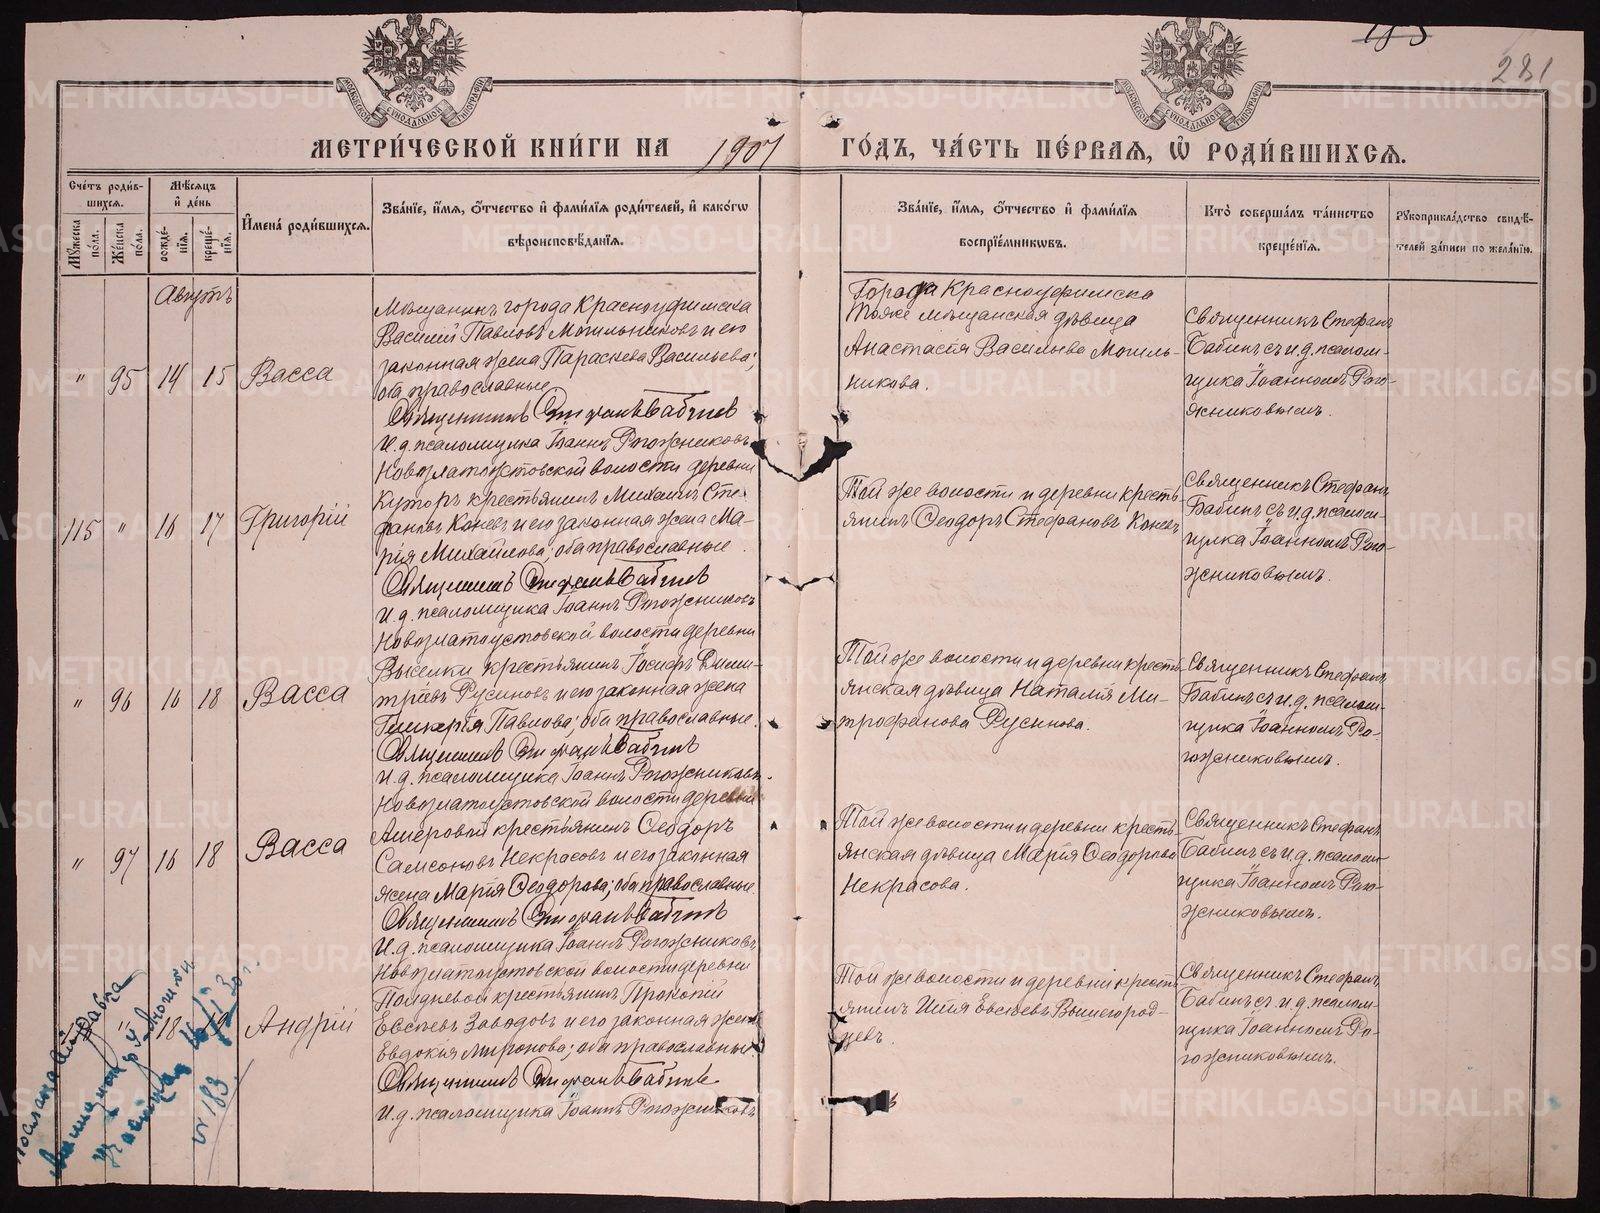 185
281
МОСКОВСКОЙ СѴНОДАЛЬНОЙ ТИПОГРАФІИ
МОСКОВСКОЙ СѴНОДАЛЬНОЙ ТИПОГРАФІИ
МЕТРИ́ЧЕСКОЙ КНИ́ГИ НА 1907 ГО́ДЪ, ЧА́СТЬ ПЕ́РВАЯ, Ѡ РОДИ́ВШИХСЯ.
Сче́тъ роди́в-
шихся.
Мѹ́жеска по́ла.
Же́нска по́ла.
Мѣ́сяцъ
и҆ де́нь
рожде́-
нїя.
креще́-
нїя.
И҆мена̀ роди́вшихся.
Зва́нїе, и҆́мя, ѻ҆́тчество и҆ фами́лїя роди́телей, и҆ како́гѡ
вѣроисповѣ́данїя.
Зва́нїе, и҆́мя, ѻ҆́тчество и҆ фами́лїя
воспрїе́мникѡвъ.
Кто̀ соверша́лъ та́инство
креще́нїя.
Рѹкоприкла́дство свидѣ́-
телей за́писи по жела́нїю.
Августъ
" 95 14 15 Васса
Мѣщанинъ города Красноуфимска
Василій Павловъ Могильниковъ и его
законная жена Параскева Васильева;
оба православные
Священникъ Стефанъ Бабинъ
И.д. псаломщика Іоаннъ Рогожниковъ
Города Красноуфимска
тоже мѣщанская дѣвица
Анастасія Васильева Могиль-
никова.
Священникъ Стефанъ
Бабинъ съ и.д. псалом-
щика Іоанномъ Рого-
жниковымъ.
115 " 16 17 Григорій
Новозлатоустовской волости деревни
крестьянинъ Михаилъ Сте-
фановъ Коневъ и его законная жена Ма-
рія Михайлова; оба православные.
Священникъ Стефанъ Бабинъ
И.д. псаломщика Іоаннъ Рогожниковъ
Той же волости и деревни кресть-
янинъ Ѳеодоръ Стефановъ Коневъ
Священникъ Стефанъ
Бабинъ съ и.д. псалом-
щика Іоанномъ Рого-
жниковымъ.
" 96 16 18 Васса
Новозлатоустовской волости деревни
Выселки крестьянинъ Іосифъ Дими-
тріевъ Русиновъ и его законная жена
Гликерія Павлова; оба православные.
Священникъ Стефанъ Бабинъ
И.д. псаломщика Іоаннъ Рогожниковъ.
Той же волости и деревни кресть-
янская дѣвица Наталія Ми-
трофанова Русинова.
Священникъ Стефанъ
Бабинъ съ и.д. псалом-
щика Іоанномъ Ро-
гожниковымъ.
" 97 16 18 Васса
Новозлатоустовской волости деревни
Амеровой крестьянинъ Ѳеодоръ
Самсоновъ Некрасовъ и его законная
жена Марія Ѳеодорова; оба православные.
Священникъ Стефанъ Бабинъ
И.д. псаломщика Іоаннъ Рогожниковъ
Той же волости и деревни кресть-
янская дѣвица Марія Ѳеодорова
Некрасова.
Священникъ Стефанъ
Бабинъ съ и.д. псалом-
щика Іоанномъ Рого-
жниковымъ.
" 18 Андрій
Новозлатоустовской волости деревни
Полдневой крестьянинъ Прокопій
Евсѣевъ Заводовъ и его законная жена
Евдокія Миронова; оба православные.
Священникъ Стефанъ Бабинъ
И.д. псаломщика Іоаннъ Рогожниковъ
Той же волости и деревни кресть-
янинъ Илія Евсѣевъ Вышегород-
цевъ.
Священникъ Стефанъ
Бабинъ съ и.д. псалом-
щика Іоанномъ Ро-
гожниковымъ.
30 г.
№ 183
METRIKI.GASO-URAL.RU